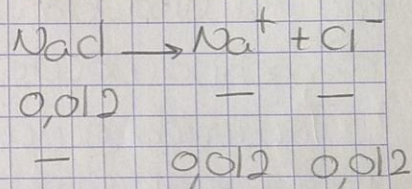 NaCl → Na⁺ + Cl⁻
0,012 — —
— 0,012 0,012